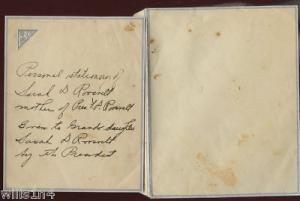 Personal stationery of
Sarah D Roosevelt
mother of Pres't Roosevelt
Given to Grand daughter
Sarah D Roosevelt
by the President
willis1n4